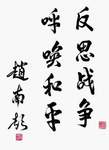 反思战争
呼唤和平
赵南起